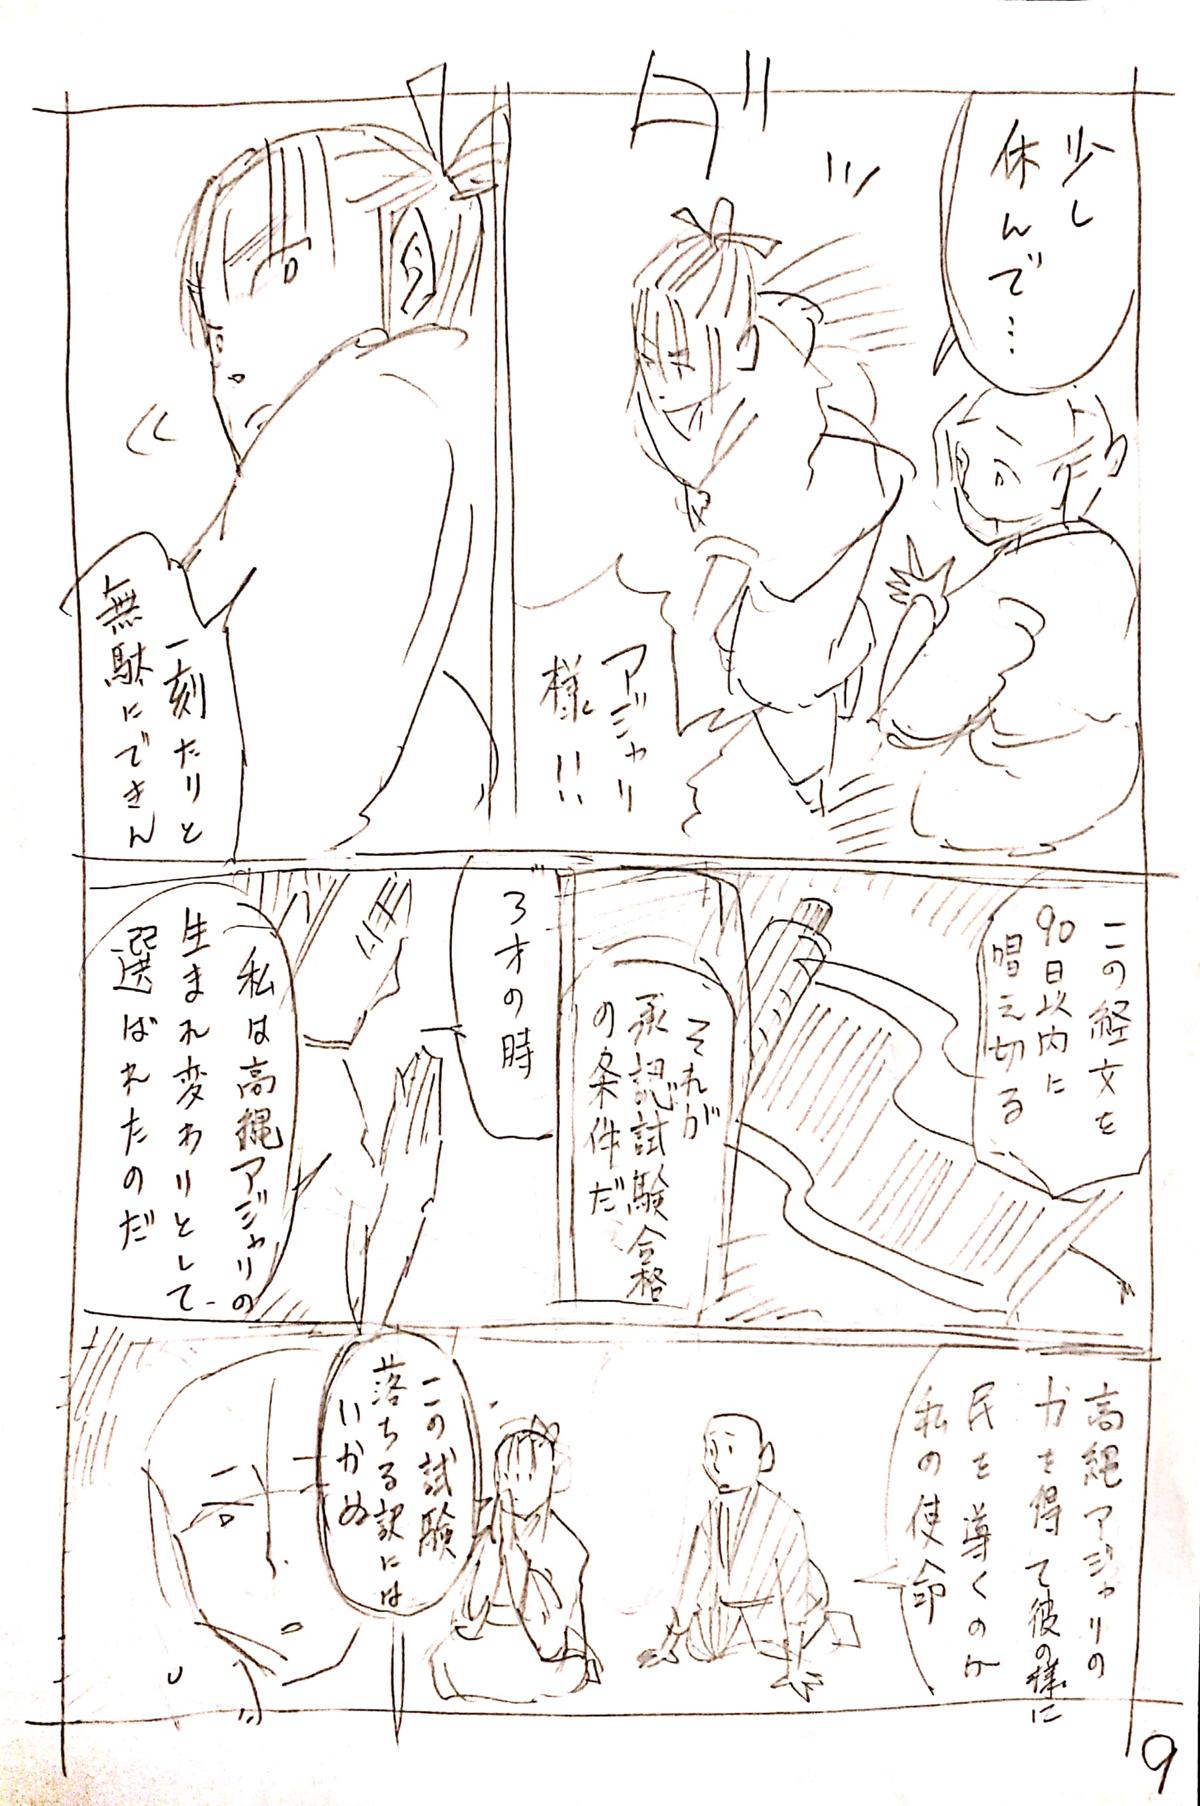 少し
休んで…
グッ
アジャリ
様!!
一刻たりと
無駄にできん
この経文を
90日以内に
唱え切る
それが
承認試験合格
の条件だ
3才の時
私は高縄アジャリの
生まれ変わりとして
選ばれたのだ
高縄アジャリの
力を得て彼の様に
民を導くのが
私の使命
この試験
落ちる訳には
いかぬ
9